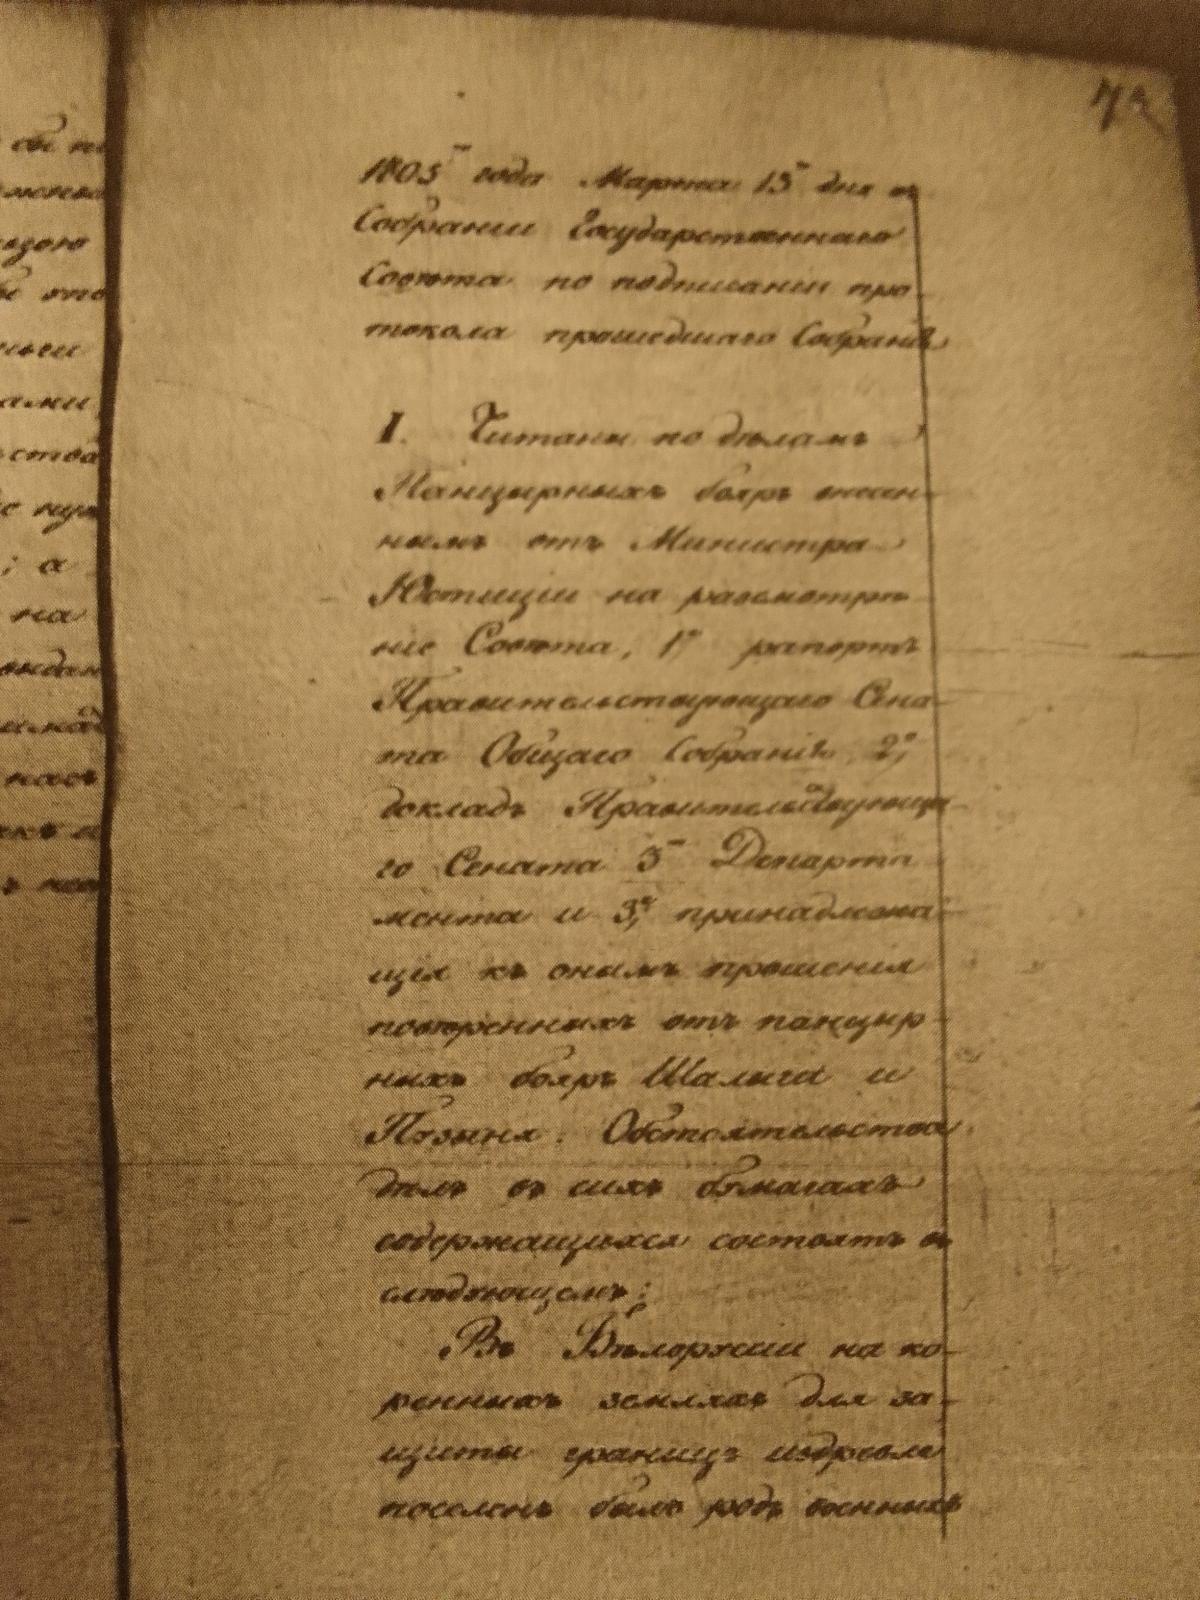 72
1805го года Марта 13го дня въ
Собрании Государственнаго
Совѣта по подписании про-
токола прошедшаго Собранія
I. Читаны по дѣламъ
Панцырныхъ бояръ внесен-
нымъ отъ Министра
Юстиціи на разсмотрѣ-
ніе Совѣта, 1е рапортъ
Правительствующаго Сена-
та Общаго Собранія, 2е,
докладъ Правительствующа-
го Сената 3го Департа
мента и 3е, принадлежа-
щія къ онымъ прошенія
повѣренныхъ отъ панцыр-
ныхъ бояръ Шалыги и
Обстоятельства
дѣлъ въ сихъ бумагахъ
содержащихся состоятъ въ
слѣдующемъ:
Въ Бѣлоруссии на ко-
ренныхъ земляхъ для за-
щиты границъ издревле
поселенъ былъ родъ военныхъ
сбы
зою
ами
ства
; а
на